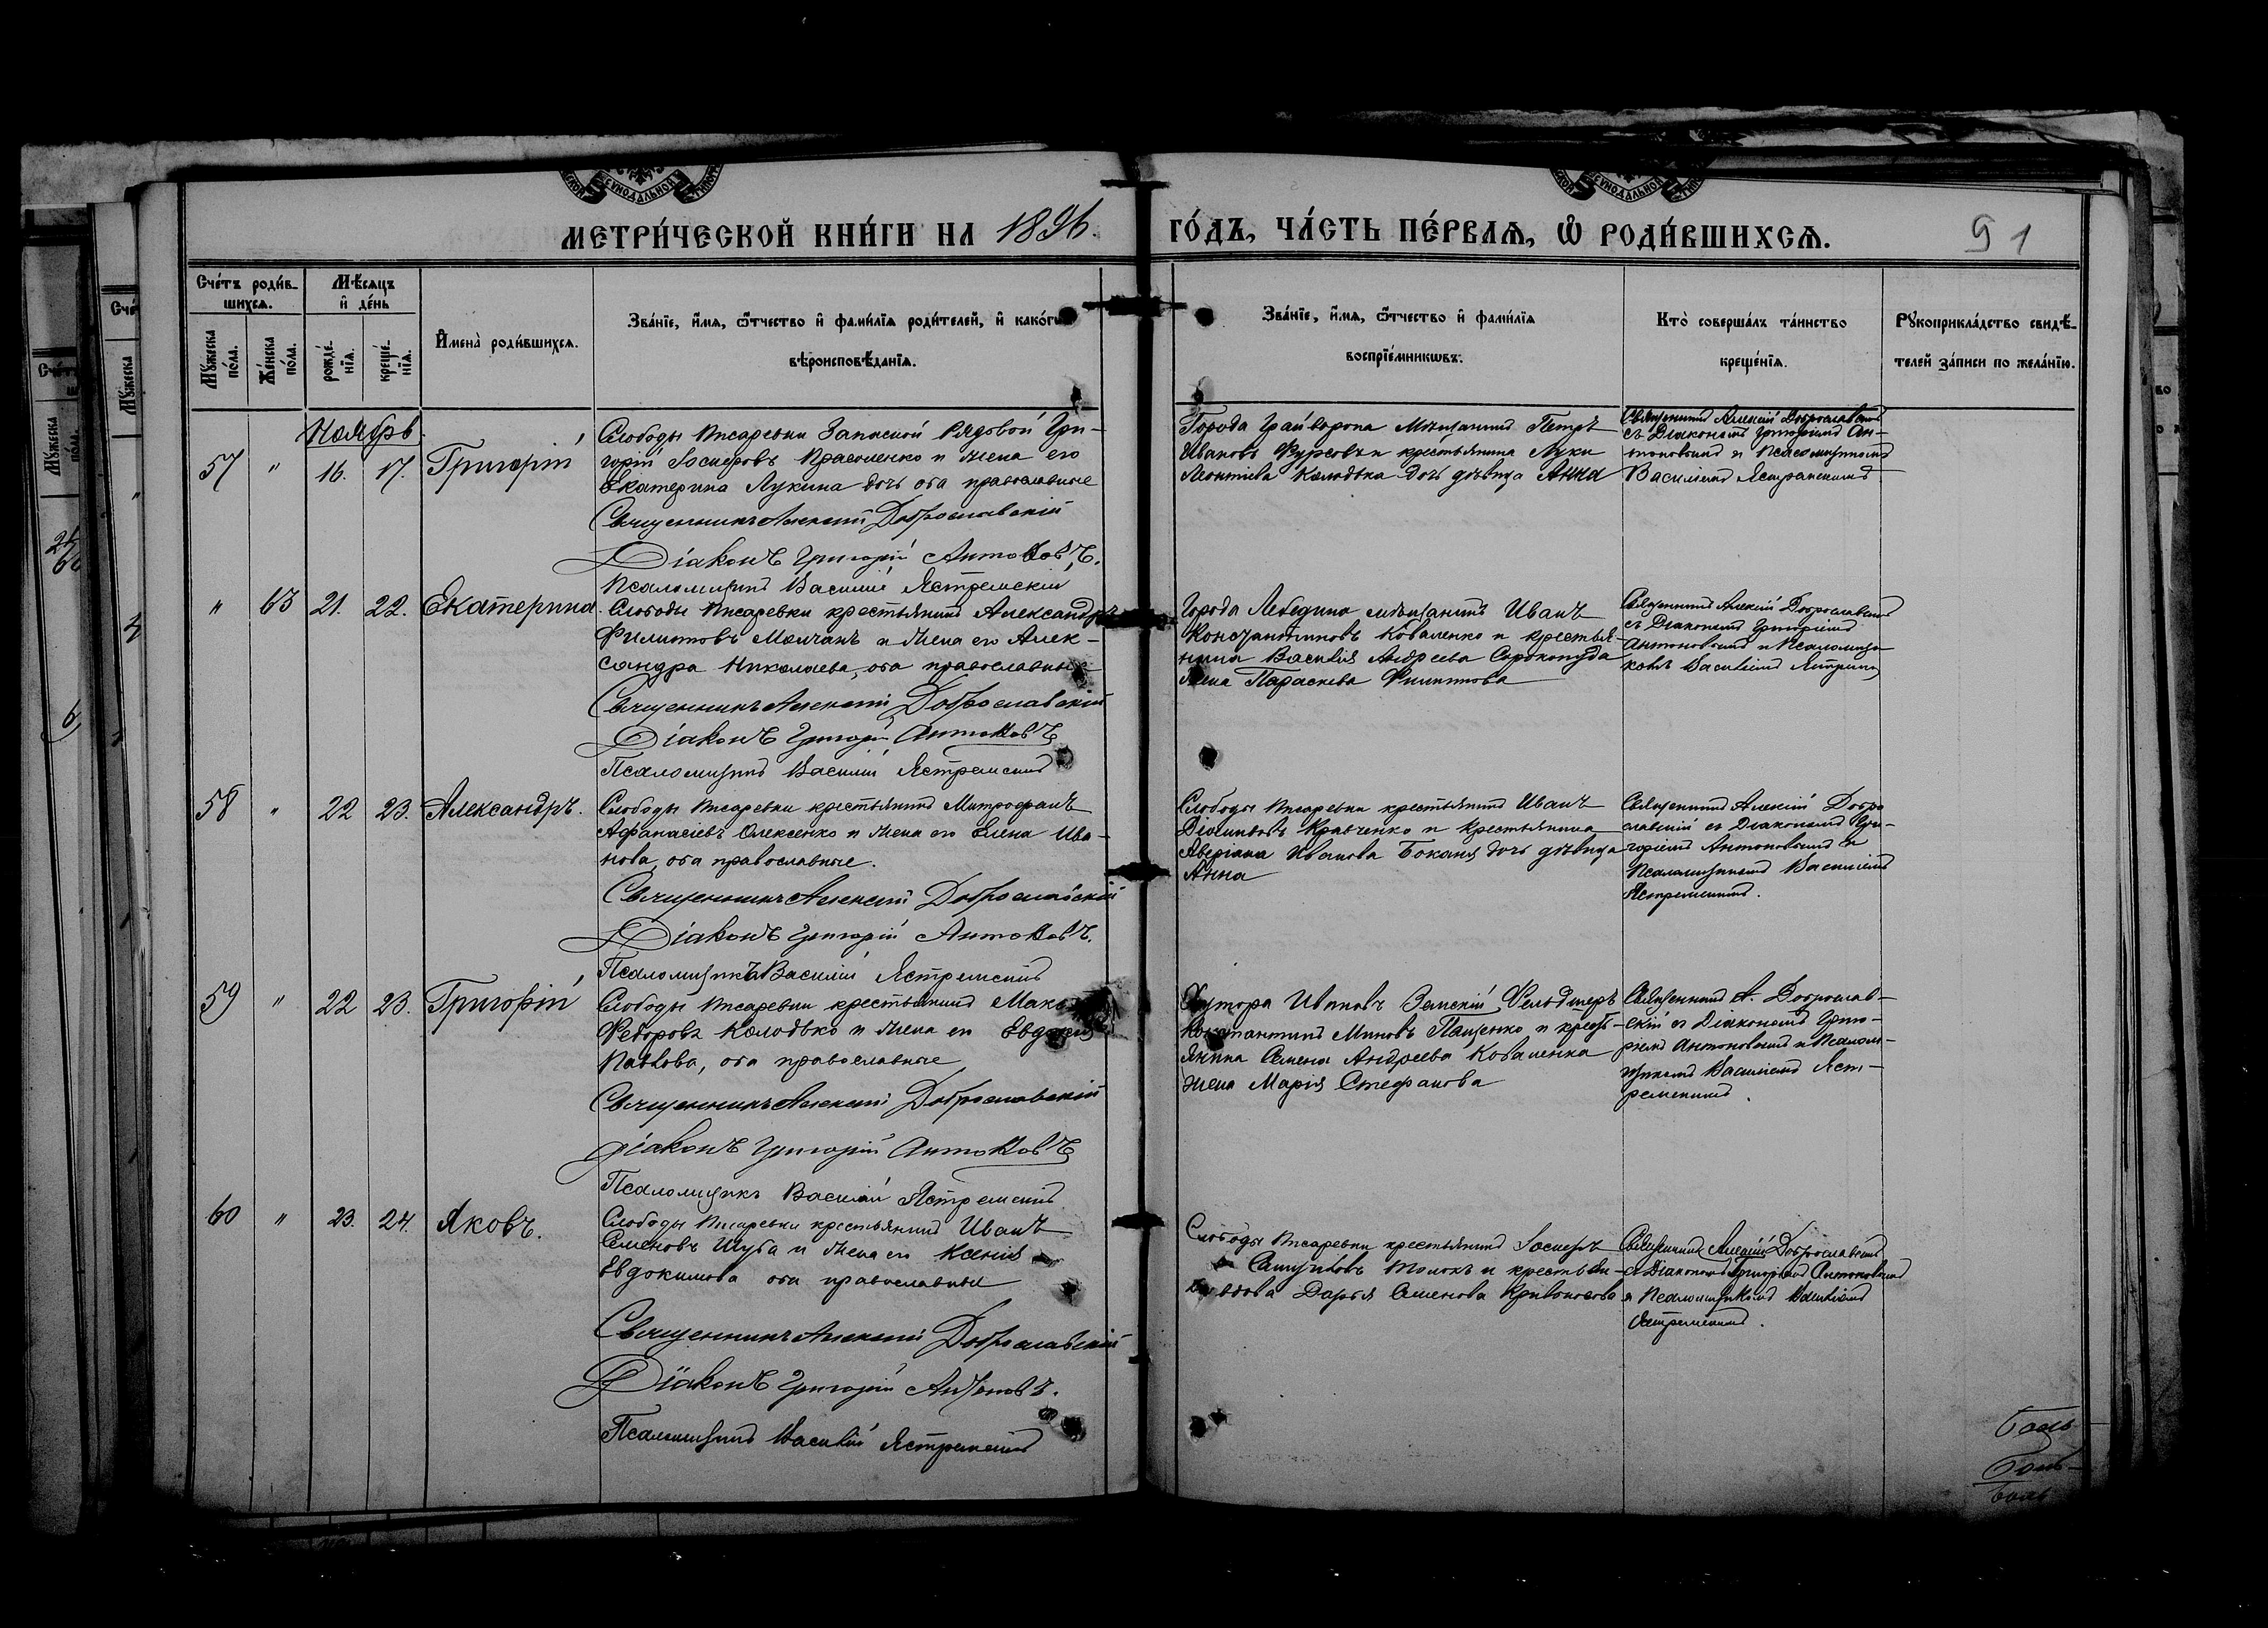 МЕТРИ́ЧЕСКОЙ КНИ́ГИ НА 1896. ГО́ДЪ, ЧА́СТЬ ПЕ́РВАЯ, Ѽ РОДИ́ВШИХСЯ.
91
Сче́тъ роди́в-
шихся.
Мѣ́сяцъ
и҆ де́нь
Мꙋ́жеска
по́ла.
Же́нска
по́ла.
рожде́-
нїя.
креще́-
нїя.
И҆мена̀ роди́вшихся.
Зва́нїе, и҆́мя, ѿтчество и҆ фами́лїя роди́телей, и҆ како́гѡ
вѣроисповѣ́данїя.
Зва́нїе, и҆́мя, ѿтчество и҆ фами́лїя
воспрїе́мникѡвъ.
Кто̀ соверша́лъ та́инство
креще́нїя.
Рꙋкоприкла́дство свидѣ́-
телей за́писи по жела́нїю.
Ноябрь.
57 " 16. 17. Григорій
Слободы Писаревки Запасной Рядовой Гри-
горій Іосифовъ Прасоленко и жена его
Екатерина Лукина дочь оба православные
Священникъ Алексій Доброславскій
Діаконъ Григорій Антоновъ.
Псаломщикъ Василій Ястремскій
Города Грайворона Мѣщанинъ Петръ
Ивановъ Фурсовъ и крестьянина Луки
Леонтіева Колодька дочь дѣвица Анна
Священникъ Алексій Доброславскій
съ Діакономъ Григоріемъ Ан-
тоновымъ и Псаломщикомъ
Василіемъ Ястремскимъ
" 63 21. 22. Екатерина.
Слободы Писаревки крестьянинъ Александръ
Филиповъ Молчанъ и жена его Алек-
сандра Николаева, оба православные
Священникъ Алексій Доброславскій
Діаконъ Григорій Антоновъ
Псаломщикъ Василій Ястремскій
Города Лебедина мѣщанинъ Иванъ
Константиновъ Коваленко и крестья-
нина Василія Андреева Сорокопуда
жена Параскева Филиппова
Священникъ Алексій Доброславскій
съ Діакономъ Григоріемъ
Антоновымъ и Псаломщи-
комъ Василіемъ
58 " 22 23. Александръ.
Слободы Писаревки крестьянинъ Митрофанъ
Афанасіевъ Олексенко и жена его Елена Ива-
нова, оба православные.
Священникъ Алексій Доброславскій
Діаконъ Григорій Антоновъ.
Псаломщикъ Василій Ястремскій
Слободы Писаревки крестьянинъ Иванъ
Кравченко и крестьянина
Аверіана Иванова дочь дѣвица
Анна
Священникъ Алексій Добро
славскій съ Діакономъ Гри-
горіемъ Антоновымъ и
Псаломщикомъ Василіемъ
Ястремскимъ.
59 " 22 23. Григорій
Слободы Писаревки крестьянинъ
Федоровъ Колодько и жена его Евдокія
Павлова, оба православные
Священникъ Алексій Доброславскій
Діаконъ Григорій Антоновъ
Псаломщикъ Василій Ястремскій
Хутора Ивановъ Земскій Фельдшеръ
Константинъ Миновъ Пащенко и кресть-
янина Семена Андреева Коваленка
жена Марія Стефанова
Священникъ А. Доброслав-
скій съ Діакономъ Григо-
ріемъ Антоновымъ и Псалом-
щикомъ Василіемъ Яст-
ремскимъ.
60 " 23. 24. Яковъ.
Слободы Писаревки крестьянинъ Иванъ
Семеновъ Шуба и жена его Ксенія
Евдокимова оба православные
Священникъ Алексій Доброславскій
Діаконъ Григорій Антоновъ.
Псаломщикъ Василій Ястремскій
Слободы Писаревки крестьянинъ Іосифъ
и крестьян-
вдова Дарья Семенова Кривоносова
Священникъ Алексій Доброславскій
съ Діакономъ Григоріемъ Антоновымъ
и Псаломщикомъ Василіемъ
Ястремскимъ.